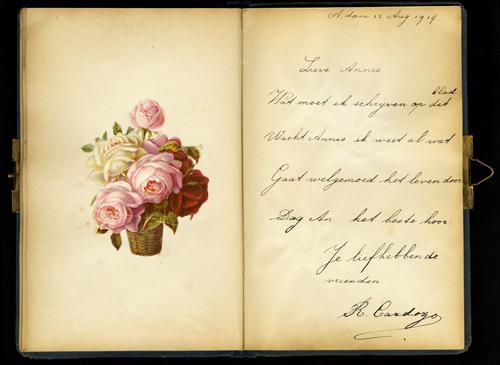 A, dam 12 Aug 1919.
Lieve Annie
Wat moet ik schrijven op dit blad
Wacht Annie ik weet al wat
Gaat welgemoed het leven door
Dag An het beste hoor.
Je liefhebbende
vriendin
R. Cardozo